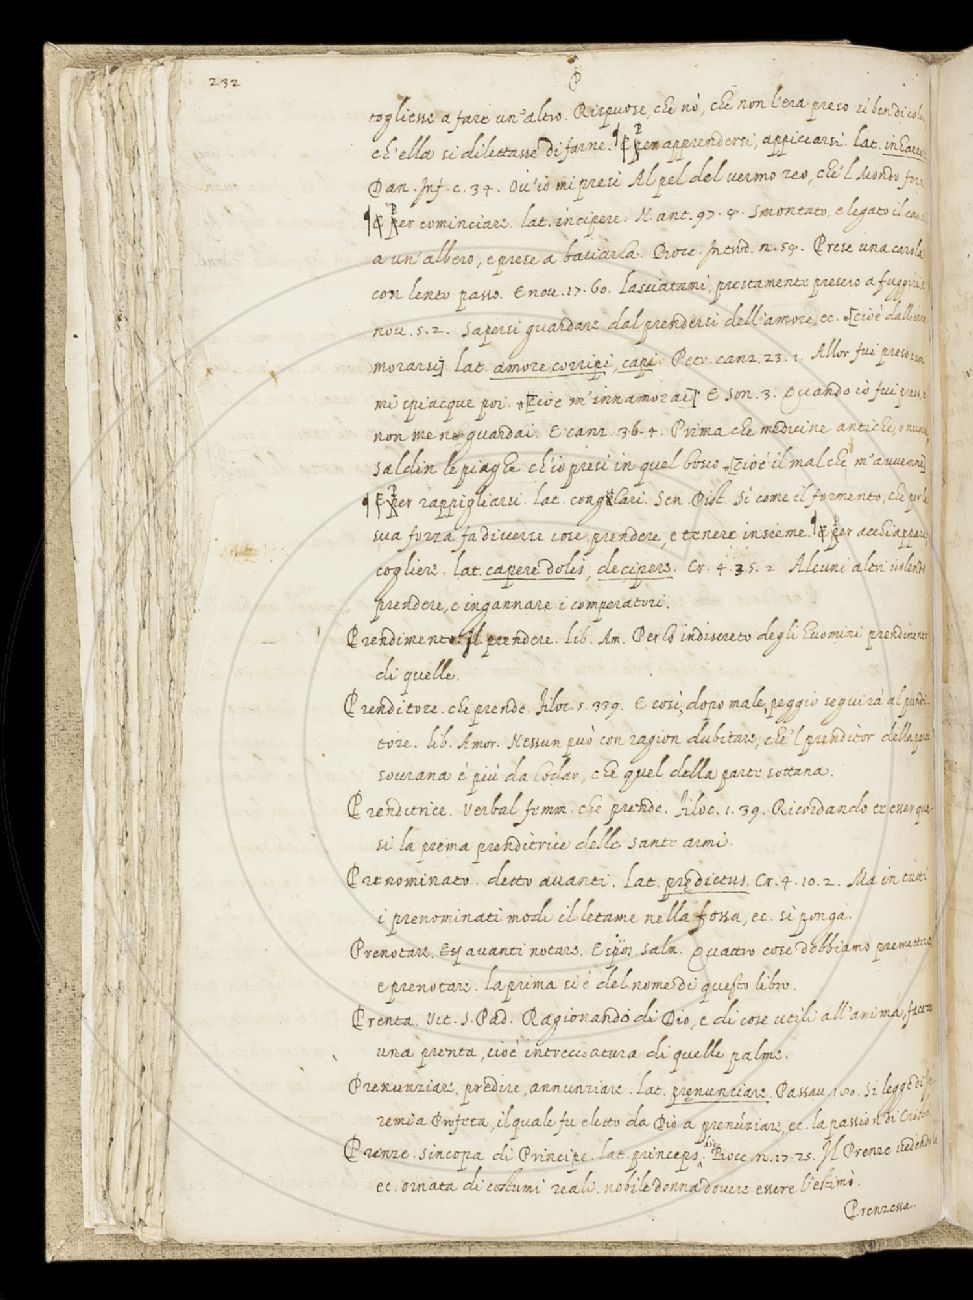 232
P
togliesse a fare un'altro. Rispuose, che nò, che non l'era preso sì ben di
ch'ella si dilettasse di farne. ¶ Per apprendersi, appiccarsi. lat.
Dan. Inf. c. 34. Ov'io mi presi Al pel del vermo reo, che'l Mondo
¶ Per cominciare. lat. incipere. N. ant. 97. 4. Smontato, e legato il
a un'albero, e prese a baciarla. Bocc. Introd. n. 54. Prese una carola
con lento passo. E nov. 17. 60. Lasciatami, prestamente presero a fuggire.
nov. 5. 2. Sapersi guardare dal prendersi dell'amore, ec. [cioè dallo
morarsi] lat. amore corripi, capi. Petr. canz. 23. 1. Allor fui preso, e
mi spiacque poi. [cioè m'innamorai] E Son. 3. Quando iò fui preso, e
non me ne guardai. E canz. 36. 4. Prima che medicine antiche, o nuove,
Saldin le piaghe ch'io presi in quel bosco [cioè il mal che m'avvenne]
¶ Per rappigliarsi. lat. congelari. Sen. Pist. Sì come il formento, che per la
sua forza fa diverse cose prendere, e tenere insieme. ¶ Per acchiappare,
cogliere. lat. capere dolis, decipere. Cr. 4. 35. 2. Alcuni altri volendo
prendere, e ingannare i comperatori.
Prendimento. Il prendere. lib. Am. Per lo indiscreto degli huomini prendimento
di quelle.
Prenditore. che prende. Filoc. 5. 339. E così, dopo male, peggio seguirà al prendi-
tore. lib. Amor. Nessun può con ragion dubitare, che'l prenditor della parte
sovrana è più da lodar, che quel della parte sottana.
Prenditrice. Verbal femm. che prende. Filoc. 1. 39. Ricordando te esser
si la prema prenditrice delle sante armi.
Prenominato. detto avanti. lat. prędictus. Cr. 4. 10. 2. Ma in tutti
i prenominati modi il letame nella fossa, ec. si ponga.
Prenotare. avanti notare. Espos. Salm. Quattro cose dobbiamo premettere,
e prenotare. la prima si è del nome di questo libro.
Prenta. Vit. S. Pad. Ragionando di Dio, e di cose utili all'anima, fecero
una prenta, cioè intrecciatura di quelle palme.
Prenunziare, predire, annunziare. lat. prenunciare. Passav. 100. Si legge di Je-
remia Profeta, il quale fu eletto da Dio a prenunziare, ec. la passion di Cristo.
Prenze. Sincopa di Principe. lat. princeps. Bocc. n. 17. 25. Il Prenze vedendola
ec. ornata di costumi reali. nobile donna dovere essere l'estimò.
Prenzessa.